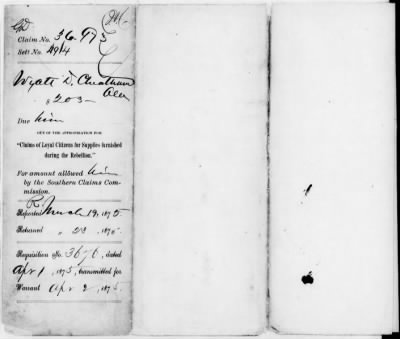 Claim No. 36,973
Sett. No. 4914
Wyatt D. Cheatham
$203-
Due him
OUT OF THE APPROPRIATION FOR
"Claims of Loyal Citizens for Supplies furnished
during the Rebellion."
For amount allowed him
by the Southern Claims Com-
mission.
Reported March 19, 1875
Returned " 23, 1875.
Requisition No. 3676, dated
Apr 1, 1875, transmitted for
Warrant Apr 2, 1875.